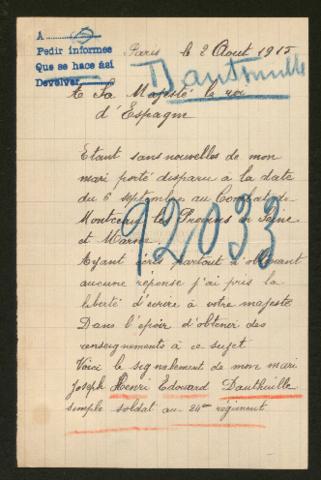 A
Pedir informes
Que se hace así
Devolver
Paris le 2 Aout 1915
Dautheuille
A Sa Majesté le roi
d'Espagne
Etant sans nouvelles de mon
mari porté disparu à la date
du 6 septembre au Combat de
Montceau les Provins en Seine
et Marne.
92033
Ayant écrit partout n'obtenant
aucune réponse j'ai pris la
liberté d'écrire à votre majesté
Dans l'espoir d'obtenir des
renseignements à ce sujet
Voici le signalement de mon mari
Joseph Henri Edouard Dautheuille
simple soldat au 24eme régiment